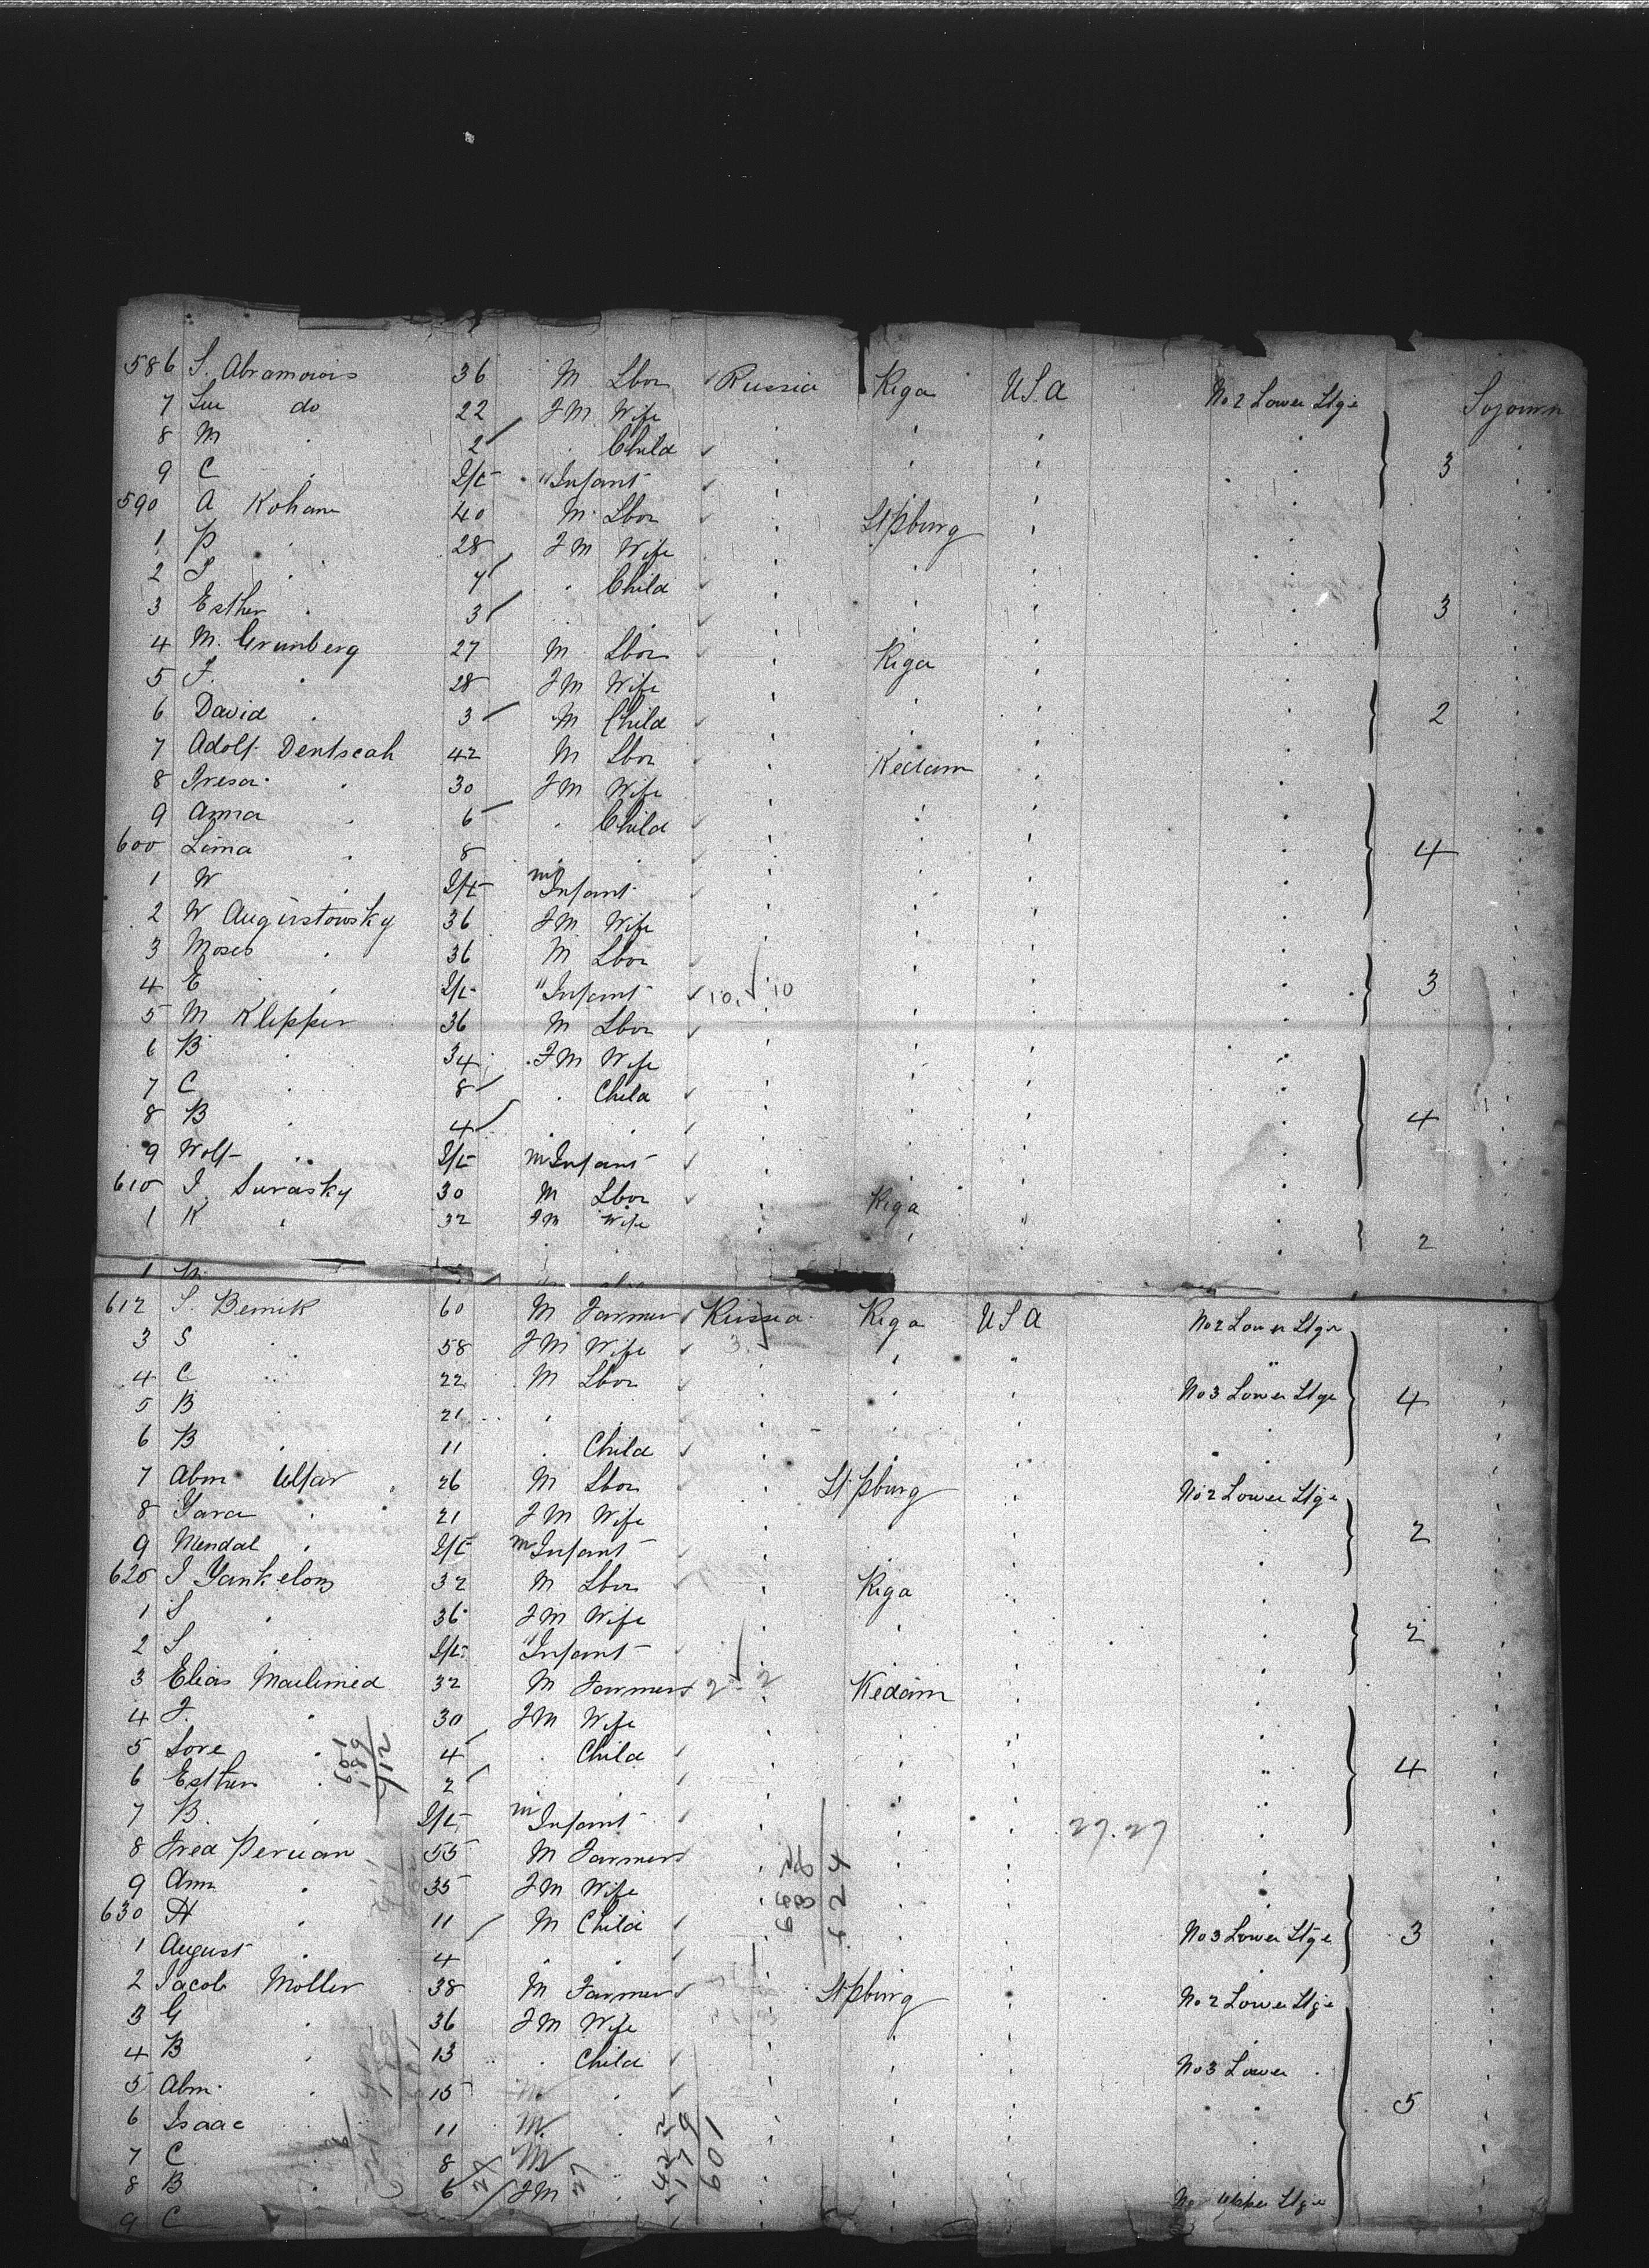 586 S. Abramowis 36 M Lbor Russia Riga USA No 2 Lower Stge Sojourn
7 do 22 FM Wife
8 M 2 Child 3
9 C Inft Infant
590 A Kohan 40 M Lbor St Pburg
1 P 28 FM Wife
2 S 7 Child
3 Esther 3 3
4 M. Grunberg 27 M Lbor Riga
5 F. 28 FM Wife
6 David 3 M Child 2
7 Adolf Dentscah 42 M Lbor Kedam
8 Tresa 30 FM Wife
9 Anna 6 Child
600 Lima 8 4
1 W Inft m Infant
2 W Augustowsky 36 FM Wife
3 Moses 36 M Lbor
4 E Inft " Infant 10. 10 3
5 M Klepper 36 M Lbor
6 B 34 FM Wife
7 C 8 Child
8 B 4 4
9 Wolf Inft m Infant
610 I. Surasky 30 M Lbor Riga
1 K 32 FM Wife 2
612 S. Bernik 60 M Farmer Russia Riga USA No 2 Lower Stge
3 S 58 FM Wife 3
4 C 22 M Lbor No 3 Lower Stge 4
5 B 21
6 B 11 Child
7 Abm Ulfar 26 M Lbor St Pburg No 2 Lower Stge
8 Sara 21 FM Wife 2
9 Mendal Inft m Infant
620 I Yankelom 32 M Lbor Riga
1 S 36 FM Wife 2
2 S Inft " Infant
3 Elias Maulimed 32 M Farmer 2 - 2 Kedam
4 F. 30 FM Wife
5 Sore 4 Child
6 Esther 2 4
7 B. Inft m Infant 27. 27
8 Fred Peruan 55 M Farmer
9 Ann 35 FM Wife
630 H 11 M Child No 3 Lower Stge 3
1 August 4
2 Jacob Moller 38 M Farmer St Pburg No 2 Lower Stge
3 G 36 FM Wife
4 B 13 Child No 3 Lower
5 Abm. 15 M 5
6 Isaac 11 M.
7 C 8 M
8 B 6 FM No Upper Stge
9 C